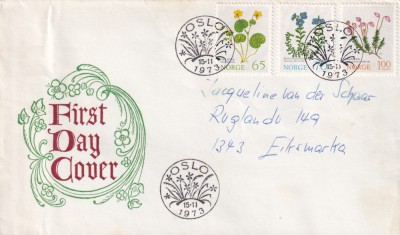 OSLO
15-11
1973
NORGE 65
NORGE
NORGE 100
OSLO
15-11
1973
First
Day
Cover
Jacqueline van der Schaar
Ruglandv 149
1343 Eiksmarka
OSLO
15-11
1973